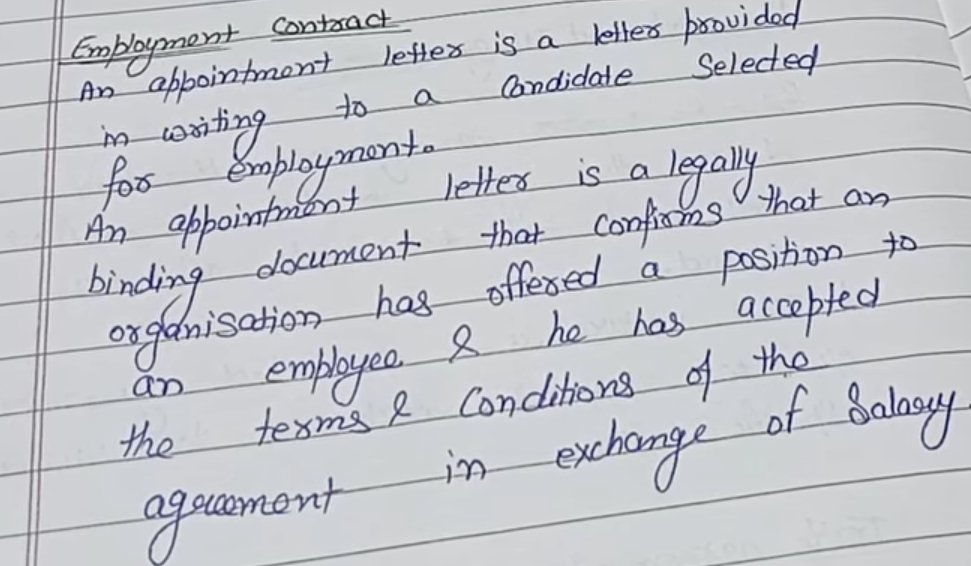 Employment Contract
An appointment letter is a letter provided
in writing to a Candidate Selected
for employment.
An appointment letter is a legally
binding document that confirms that an
organisation has offered a position to
an employee & he has accepted
the terms & Conditions of the
agreement in exchange of Salary